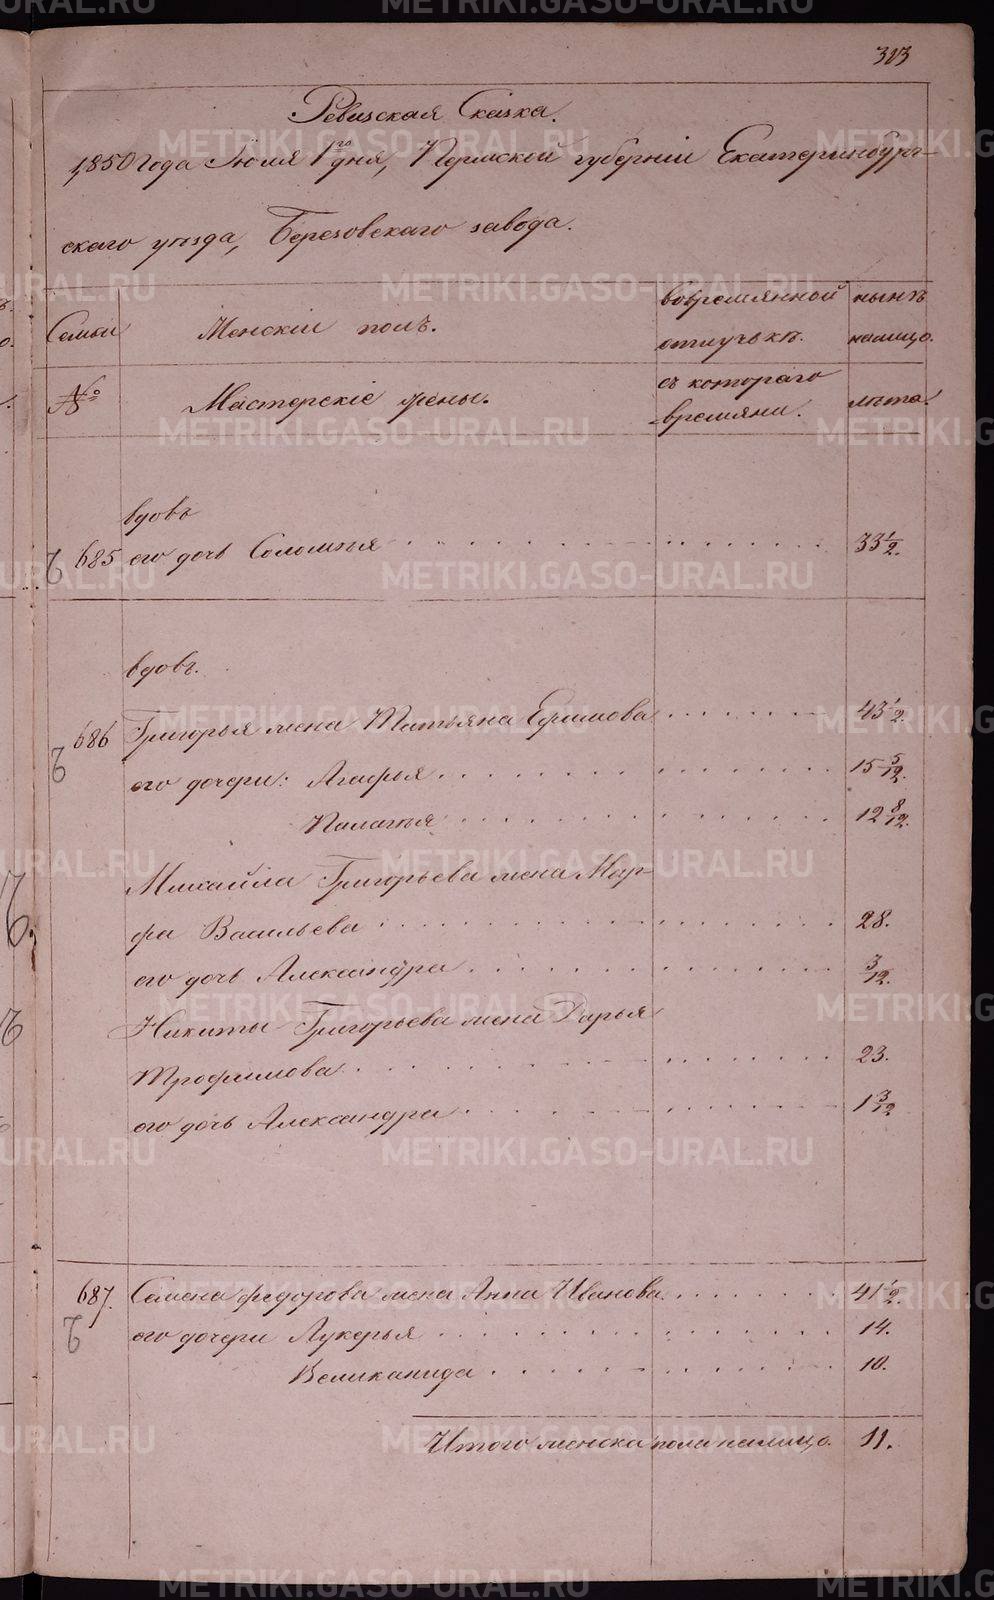 313
Ревизская Сказка.
1850 года Июля 1го дня, Пермской губернiи Екатеринбург-
скаго уѣзда, Березовскаго завода.
Семьи Женскiй полъ. вовремянной отлучкѣ. нынѣ налицо.
№ Мастерскiе жены. съ котораго времяни. лѣта.
вдовъ
685 его дочь Соломѣя 33 1/2.
вдовъ.
686 Григорья жена Татьяна Ефимова 43 1/2.
его дочери: Агафья 15 5/12.
Палагѣя 12 8/12.
Михайла Григорьева жена Мар-
фа Васильева 28.
его дочь Александра 3/12.
Никиты Григорьева жена Дарья
Трофимова 23.
его дочь Александра 1 3/12
687. Семена Федорова жена Анна Иванова 41 1/2.
его дочери Лукерья 14.
Великанида 10.
Итого женска пола налицо. 11.
METRIKI.GASO-URAL.RU